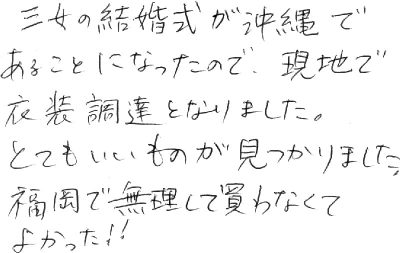 三女の結婚式が沖縄で
あることになったので、現地で
衣装調達となりました。
とてもいいものが見つかりました。
福岡で無理して買わなくて
よかった!!